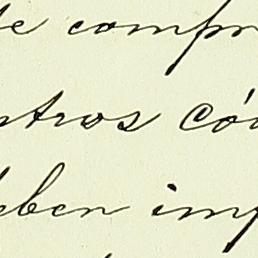 te compr
ntros Cód
eben imp